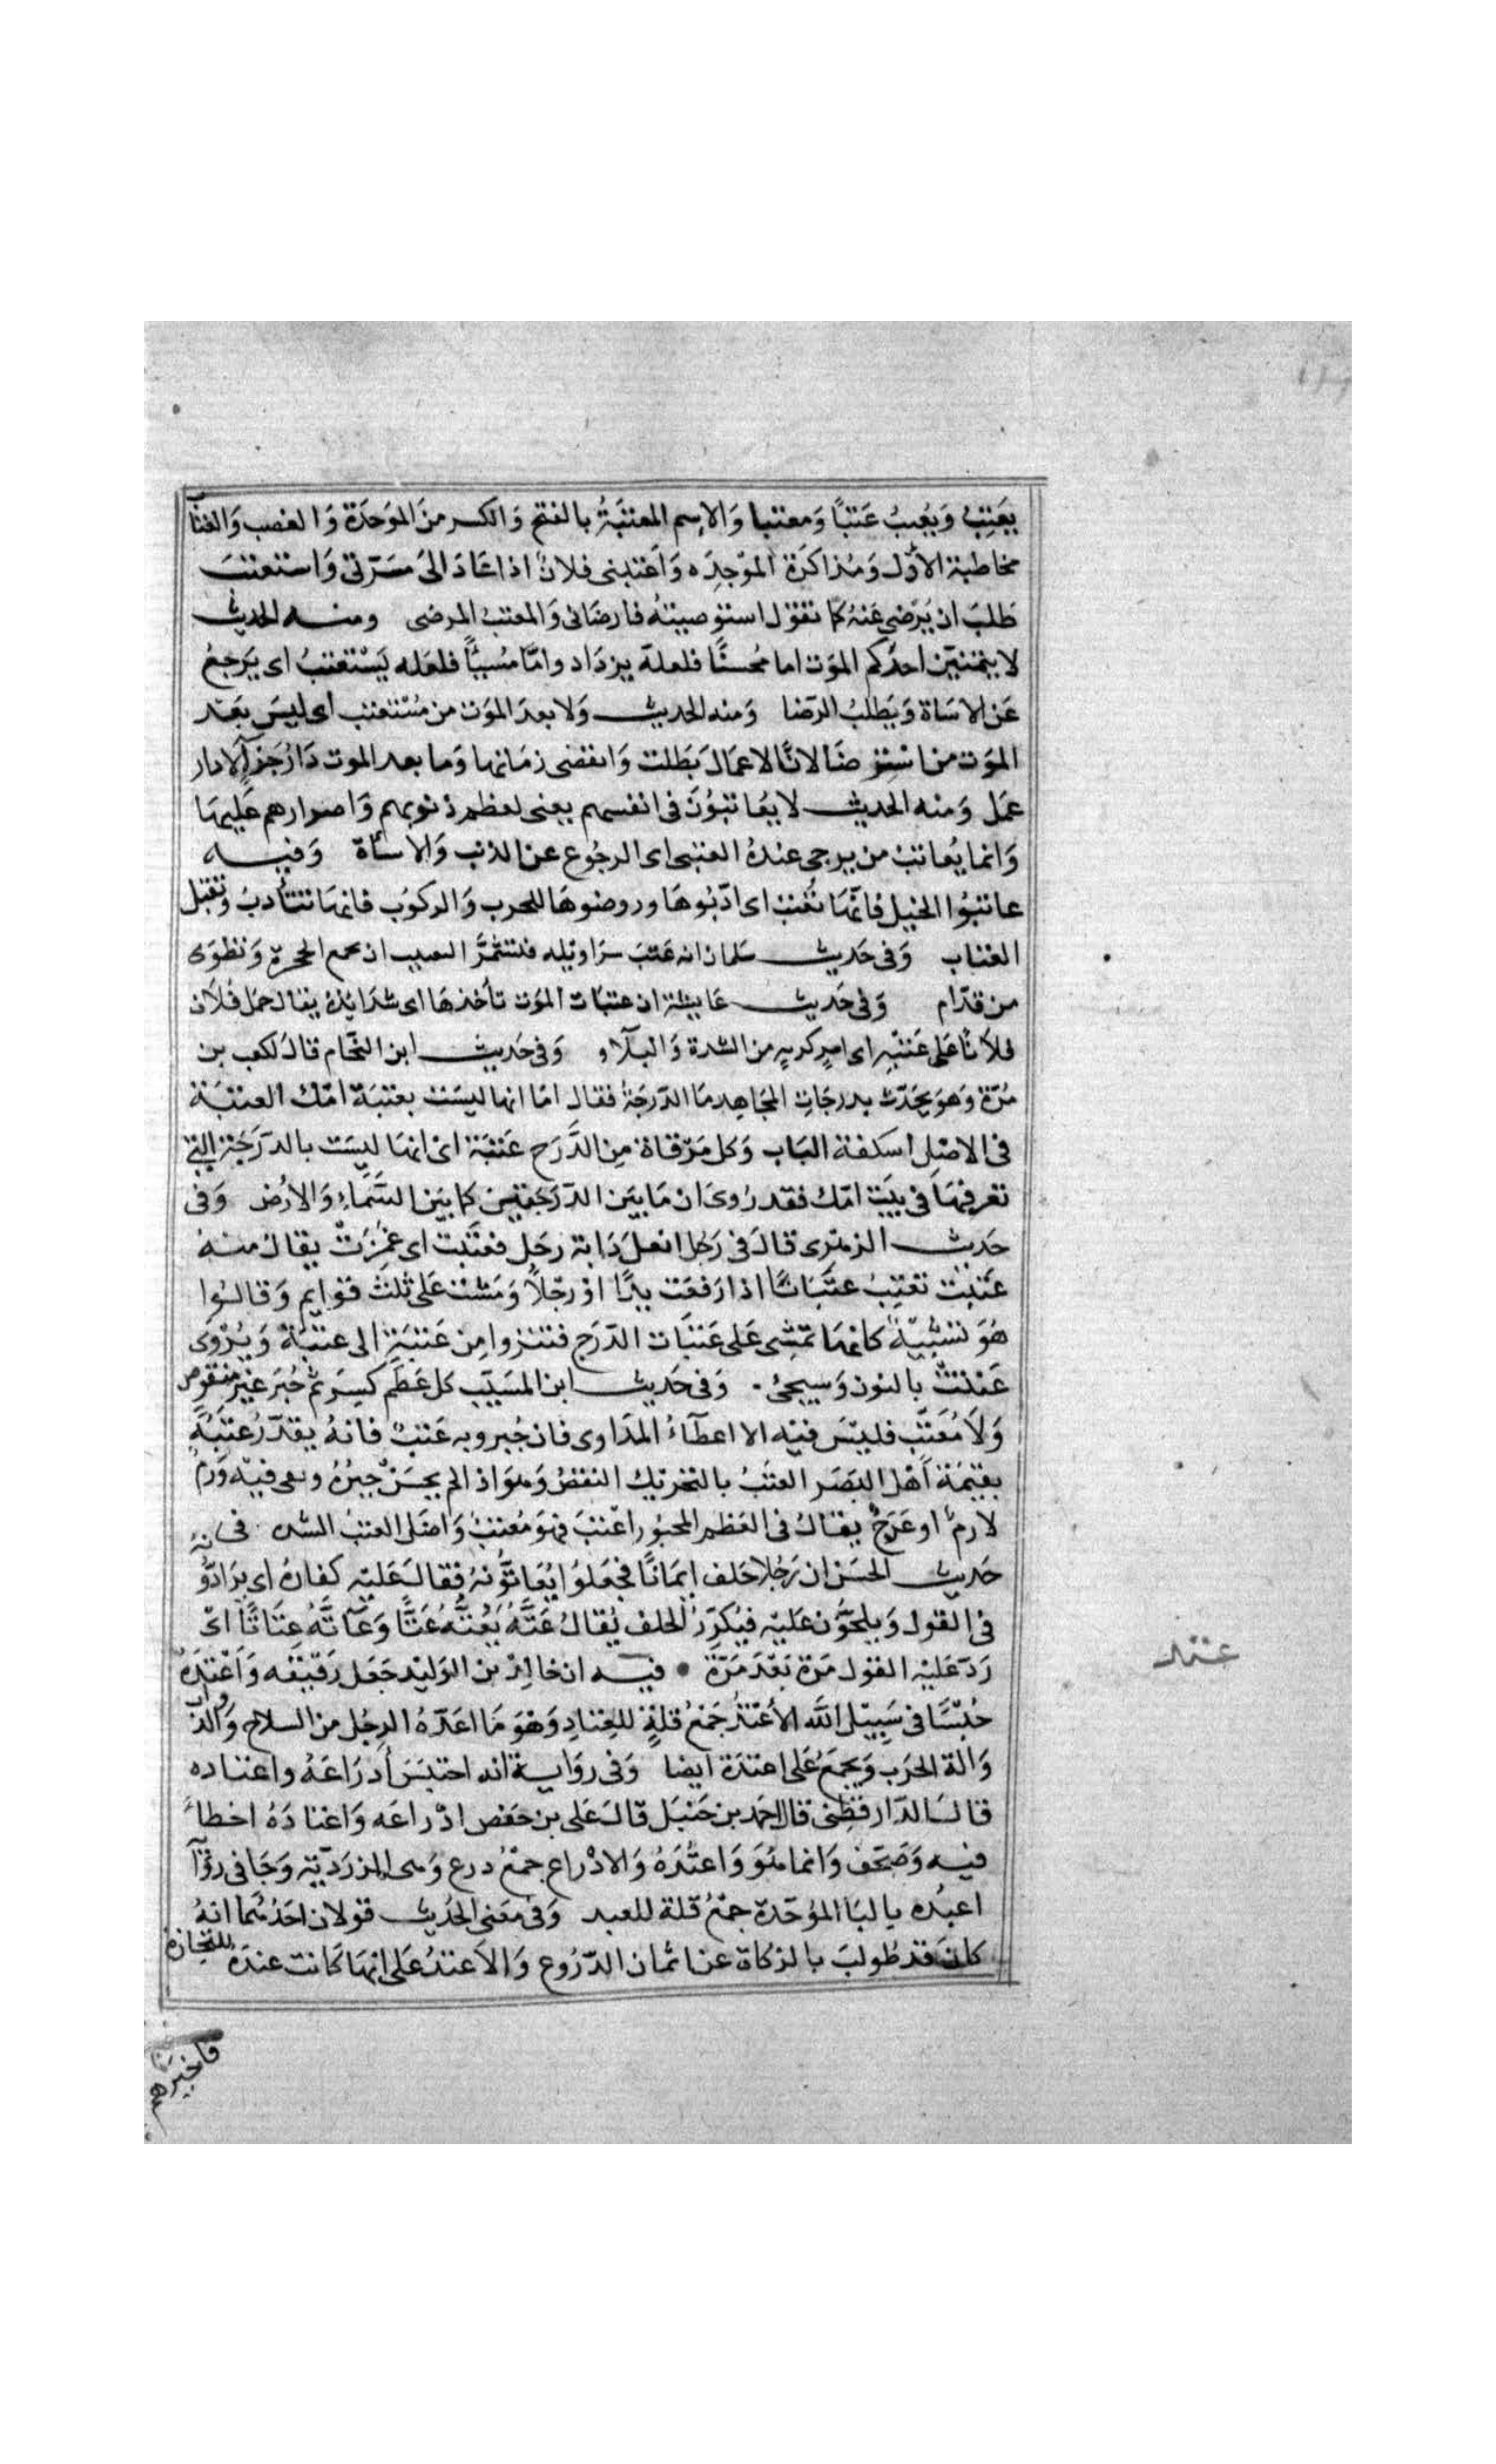 يعتِبُ وَيَعتُبُ عَتبًا وَمعتبا وَالاسم المعتَبَةُ بالفتح وَالكسر منَ الموَجدَة وَالغضب وَالعتاب
مخاطبة الأول وَمُذاكرَة الموْجِدَه وَأعتبنى فلانٌ اذا عَادَ الىَ مسَرّتى وَاستعتبَ
طَلبَ ان يُرَضى عَنهُ كما تقوْل استرضيتهُ فارضَانى وَالمعتبُ المرضى ومنه الحديث
لا يتمنيَن احدُكم الموَت اما مُحسنًا فلعلهّ يزدَاد واِمّا مُسِيئًا فلعَله يَسْتعتبُ اى يَرجعُ
عَن الاسَاة وَيَطلبُ الرّضا وَمنه الحديث وَلا بعدَ الموَت من مُسْتعتب اى ليسَ بَعَد
الموَت من استرضَا لانّ الاعمَالَ بَطلت وَانقضى زمَانها وَما بعد الموت دَارُ جَزآ لا دار
عَمل وَمنه الحديث لا يُعَاتبُوْنَ فى انفسهم يعنى لعظم ذنوبهم وَاصرارهم عَليهَا
وَانما يُعاتبُ من يرجى عندهُ العتبى اى الرجُوع عن الذنب وَالاسأة وَفيه
عاتبُوا الخيل فانّهَا تُعتبُ اى ادّبُوهَا وروضوهَا للحرب وَالركوُب فانهَا تتأدبُ وَتقبل
العتاب وَفى حَديث سَلمان انه عَتبَ سرَاويله فتشمَّرَ التعتيب ان تجمع الحجزة وَتطوى
من قدّام وَفى حَديث عَايشة ان عتبَات الموَت تأخذهَا اى شدَايدهُ يقال حمل فلَان
فلاَنًا عَلى عَتبَةٍ اى امرٍ كريهٍ من الشدة وَالبلَآء وَفى حَديث ابن النحّام قالَ لكعب بن
مُرّة وَهوَ يحَدّث بدرجَاتِ المجَاهد مَا الدّرجَةُ فقال امَا انها ليسَت بعتبَة امّك العتبَة
فى الاصْلِ اسكفة البَاب وَكل مَرْقاة مِن الدَّرَج عَتبَة اى انهَا ليسَت بالدّرَجَة التى
تعرفهَا فى بيَت امّك فقد رُوىَ ان مَا بيَن الدّرَجَتين كما بيَن السَّمآءِ وَالارُض وَفى
حَديث الزهرى قالَ فى رَجُل انعلَ دَابة رجَل فعتَبت اى غمَزَت يقالُ منهُ
عَتبَت تعَتِبُ عتَبَانًا اذا رَفعَت يدًا اوْ رجْلاً وَمَشت عَلى ثلث قوَايم وَقالوُا
هُوَ تشبيْهٌ كانهَا تمشى عَلى عَتبَات الدّرَج فتنزوا مِن عَتبَةٍ الى عتبَة وَيُرْوَى
عَنتَتْ بالنون وَسيجىُ. وَفى حَديث ابن المسَيّب كل عَظَم كِسرَ ثم جُبرَ غيَر منقوص
وَلاَ مُعَتَّبٍ فليسَ فيه الا اعطآءُ المدَاوى فان جُبر وبه عَتبٌ فانهُ يقدَّرُ عتَبُهُ
بقيمَة أهْل البَصَر العتَبُ بالتحَريك النقصُ وَهوَ اذا لم يحسَنْ جبرُهُ وبقى فيهْ وَرَمٌ
لازمٌ او عَرَجٌ يقالُ فى العَظم المجبُور اعْتبَ فهوَ مُعتبٌ وَاصَل العتبُ الشدة فى
حَديث الحسَن ان رَجُلا حَلف ايمانًا فجعَلوا يُعَاتُّونهُ فقالَ عَليْه كفارة اى يرَادّوُنهُ
فى القول وَيلحوُّن عَليْه فيُكرّرُ الحلف يُقالُ عَتَّهُ يَعُتُّهُ عَتًّا وَعَاتَّهُ عِتَاتًا اىّ
رَدّ عَليْه القول مَرة بَعْدَ مَرّةَ • فيه ان خالِدْ بن الوَليْد جَعَل رَقيْقه وَأعْتدَهُ
حُبُسًا فى سَبِيْل الله الأعْتدُ جَمْعُ قلةٍ للعِتادِ وَهوَ مَا اعَدّهُ الرجُل من السلاح وَالدّوابّ
وَالة الحرَب وَيجمَعُ عَلى اعتدَة ايضا وَفى روَاية انه احتبَسَ ادرَاعَهُ واعتاده
قالَ الدّارقطنى قال احمد بن حَنبَل قالَ عَلى بن حَفص ادْراعَه وَاعتادَهُ اخطاءَ
فيه وَصَحف وَانما هُوَ وَاعتُدَهُ وَالادْراع جمعُ درع وَهى الزرَديّة وَجَا فى روُاية
اعبُده بالبَا الموُحّدة جمْعُ قلة للعبد وَفى معَنى الحَديث قولان احَدُهُما انهُ
كانَ قد طُولبَ بالزكاة عن اثمان الدّرُوع وَالاَعتدُ عَلى انهَا كَانت عندَهُ للتجارة
فاخبرهم
عتد